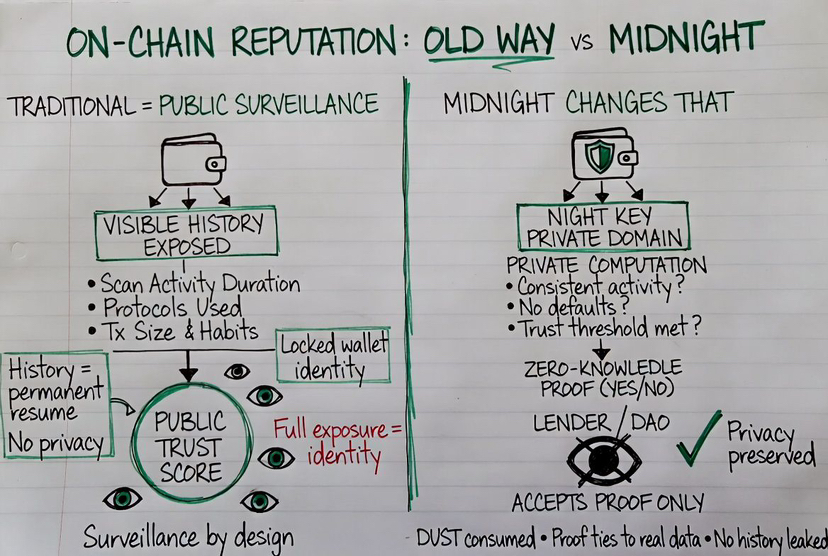 ON-CHAIN REPUTATION: OLD WAY vs MIDNIGHT
TRADITIONAL = PUBLIC SURVEILLANCE
VISIBLE HISTORY
EXPOSED
• Scan Activity Duration
• Protocols Used
• Tx Size & Habits
Locked wallet
identity
History =
permanent
resume
No privacy
PUBLIC
TRUST
SCORE
Full exposure =
identity
Surveillance by design
MIDNIGHT CHANGES THAT
NIGHT KEY
PRIVATE DOMAIN
PRIVATE COMPUTATION
• Consistent activity?
• No defaults?
• Trust threshold met?
ZERO-KNOWLEDLE
PROOF (YES/NO)
LENDER / DAO
Privacy
preserved
ACCEPTS PROOF ONLY
DUST consumed • Proof ties to real data • No history leaked